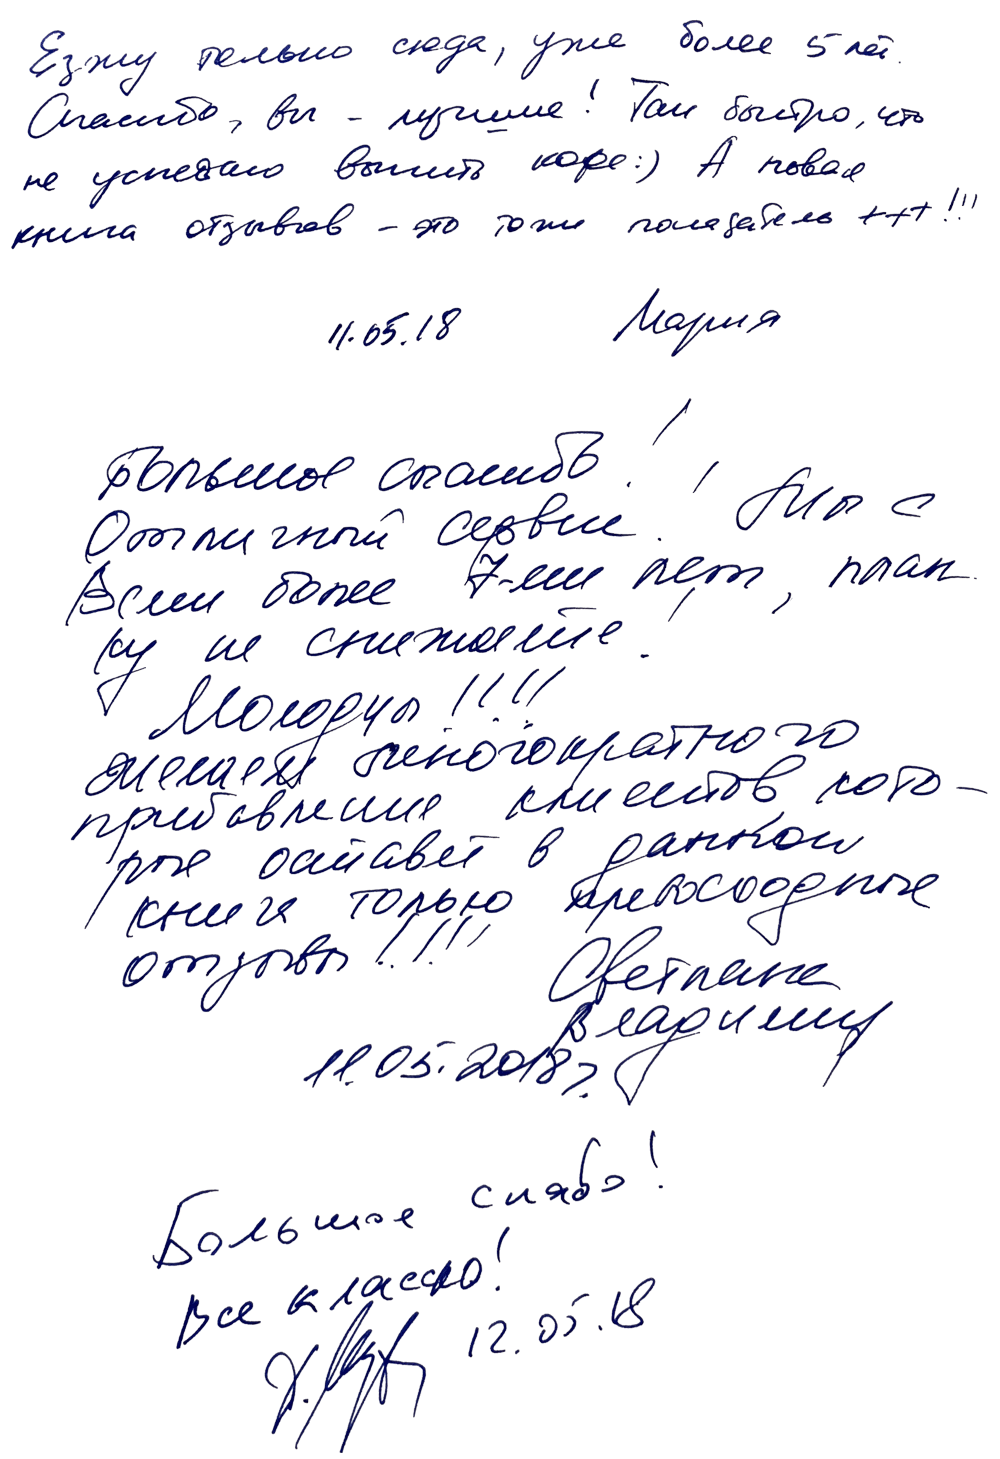 Езжу только сюда, уже более 5 лет.
Спасибо, вы - лучшие! Так быстро, что
не успеваю выпить кофе:) А новая
книга отзывов - это тоже показатель +++!!!
11.05.18 Мария
Большое спасибо!
Отличный сервис! Мы с
Вами более 7-ми лет, план
ку не снижаете!
Молодцы!!!!
желаем многократного
прибавления клиентов кото-
рые оставят в данной
книге только превосходные
отзывы!!!!
Светлана
Владимир
11.05.2018г.
Большое спабо!
Все классно!
12.05.18